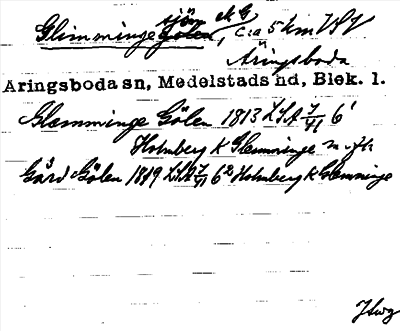 Glimminge Gölen, sjön ek G, C:a 5 km VSV
Äringsboda
Aringsboda sn, Medelstads hd, Blek. l.
Glemminge Gölen 1813 LSA 7/VI 6¹
Holmberg K Glemminge m fl.
Gård Gölen 1819 LSA 7/VI 6² Holmberg K Glemminge